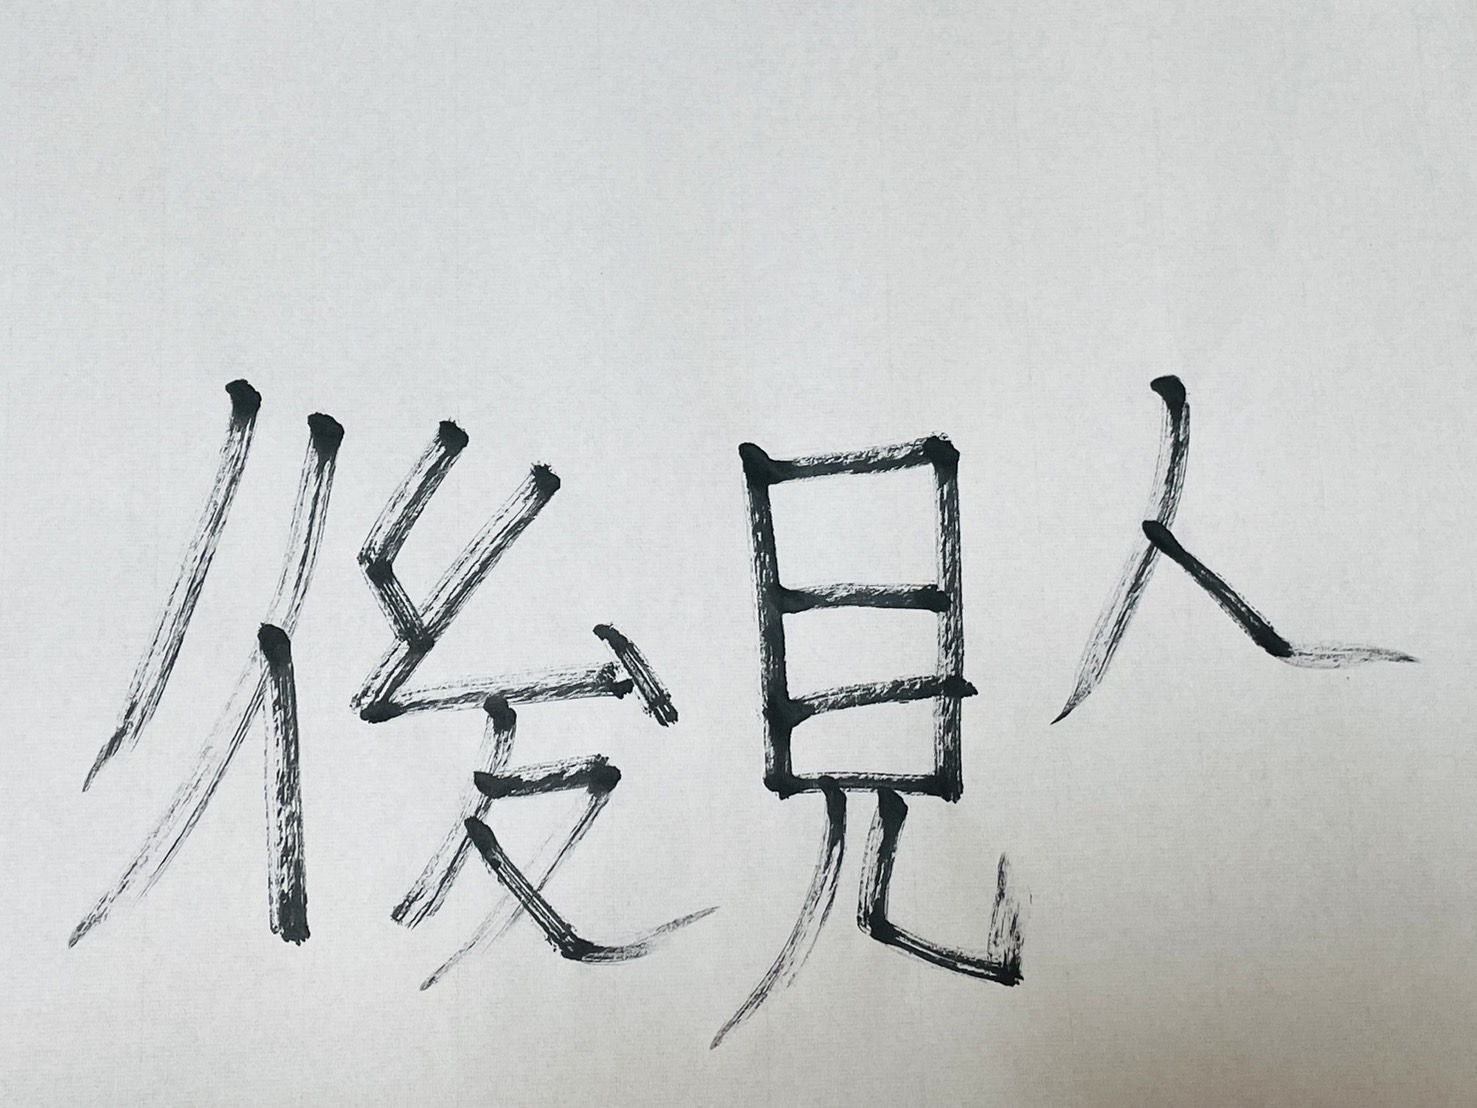 後見人